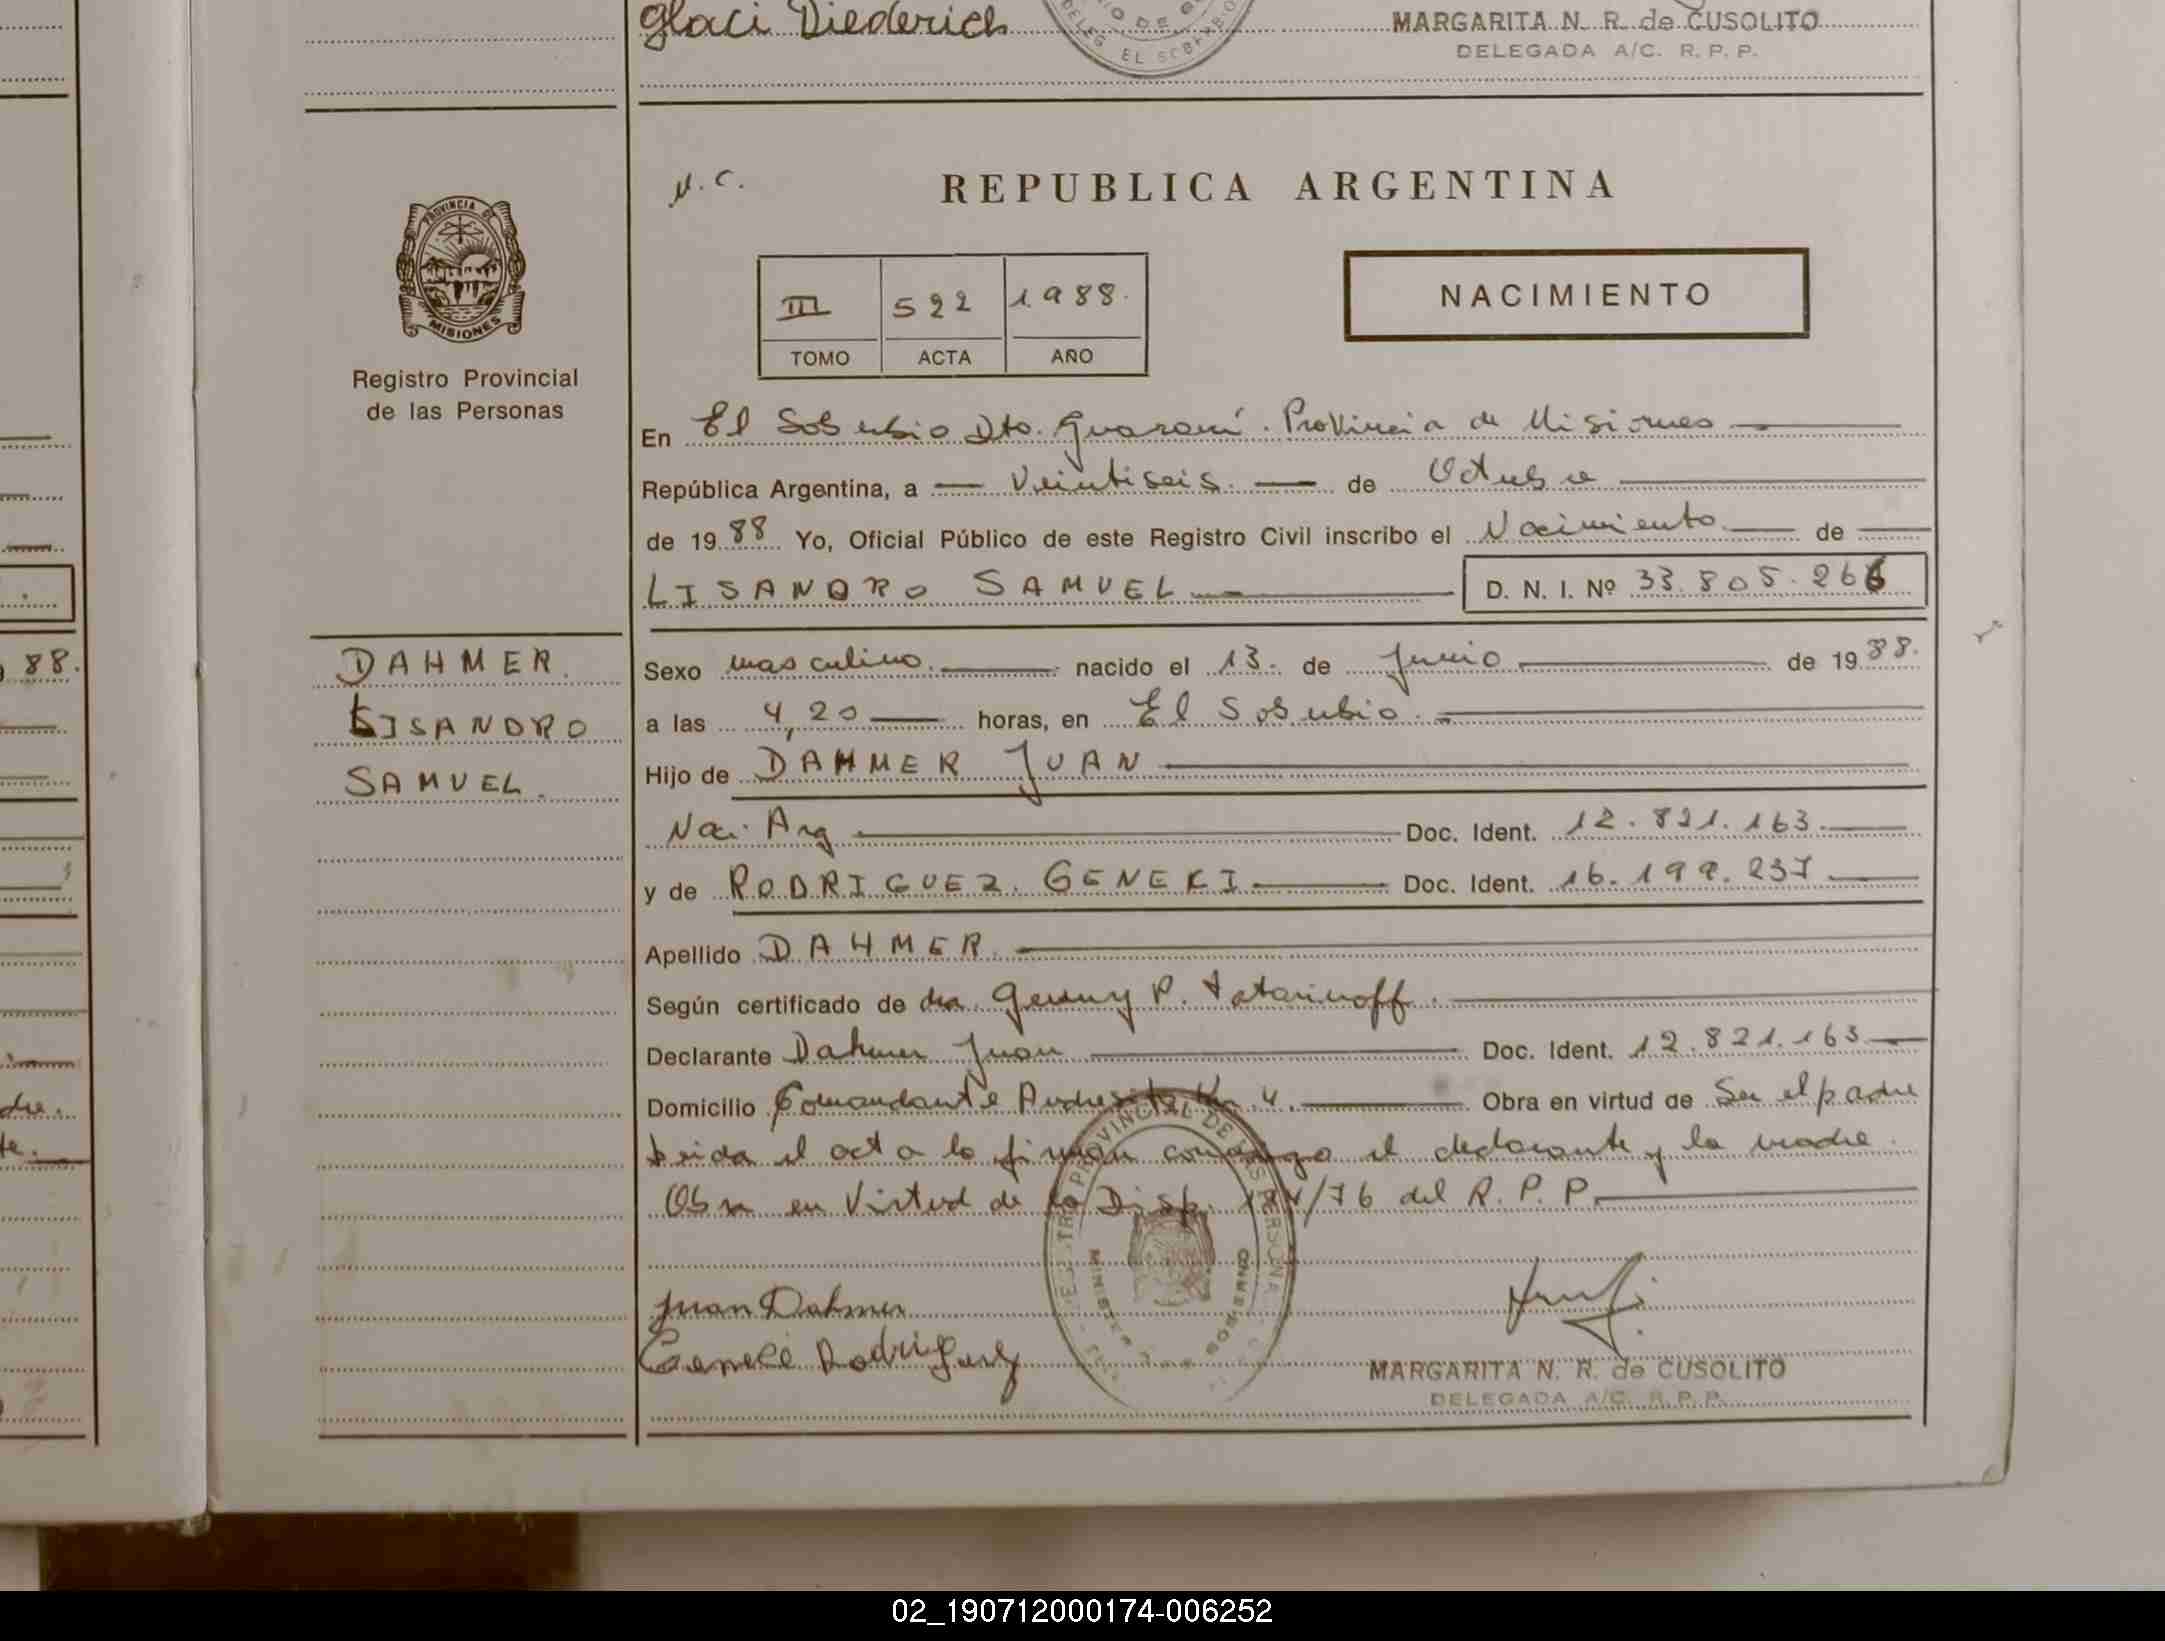 Glaci Diederich
MARGARITA N. R. de CUSOLITO
DELEGADA A/C. R. P. P.
N.C.
REPUBLICA ARGENTINA
PROVINCIA DE
MISIONES
Registro Provincial
de las Personas
III 522 1988.
TOMO ACTA AÑO
NACIMIENTO
En El Soberbio Dto. Guaraní. Provincia de Misiones
República Argentina, a Veintiseis. de Octubre
de 1988 Yo, Oficial Público de este Registro Civil inscribo el Nacimiento de
LISANDRO SAMUEL D. N. I. Nº 33.805.266
88.
DAHMER.
LISANDRO
SAMUEL.
Sexo masculino. nacido el 13. de Junio de 1988.
a las 4,20 horas, en El Soberbio.
Hijo de DAHMER JUAN
Nac. Arg Doc. Ident. 12.821.163.
y de RODRIGUEZ. GENECI Doc. Ident. 16.199.237
Apellido DAHMER.
Según certificado de dra. Genny P. Tatarinoff.
Declarante Dahmer Juan Doc. Ident. 12.821.163
Domicilio Comandante Andresito Km 4. Obra en virtud de Ser el padre
Leida el acta la firman conmigo el declarante y la madre.
Obra en Virtud de la Disp. /76 del R. P. P.
REGISTRO PROVINCIAL DE LAS PERSONAS
MINISTERIO DE GOBIERNO
Juan Dahmer
Geneci Rodriguez
MARGARITA N. R. de CUSOLITO
DELEGADA A/C. R. P. P.
02_190712000174-006252